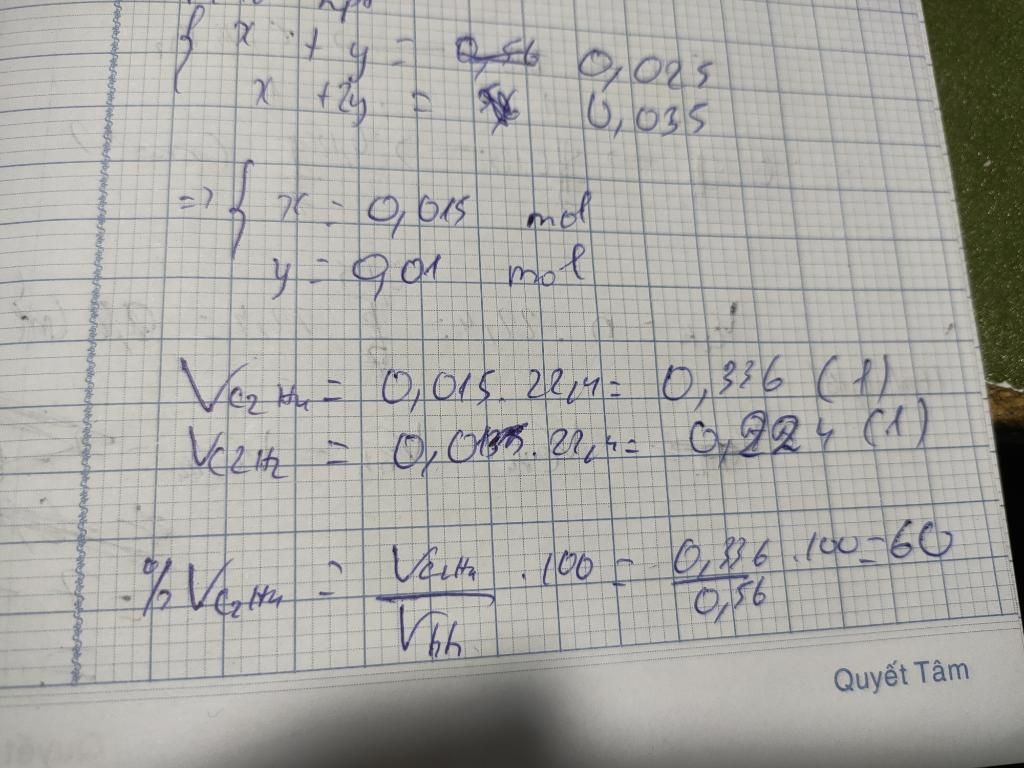 { x + y = 0,56 0,025
x + 2y = 0,035
=> { x = 0,015 mol
y = 0,01 mol
VC2H4 = 0,015 . 22,4 = 0,336 (l)
VC2H2 = 0,01 . 22,4 = 0,224 (l)
% VC2H4 = VC2H4 / Vhh . 100 = 0,336 / 0,56 . 100 = 60
Quyết Tâm